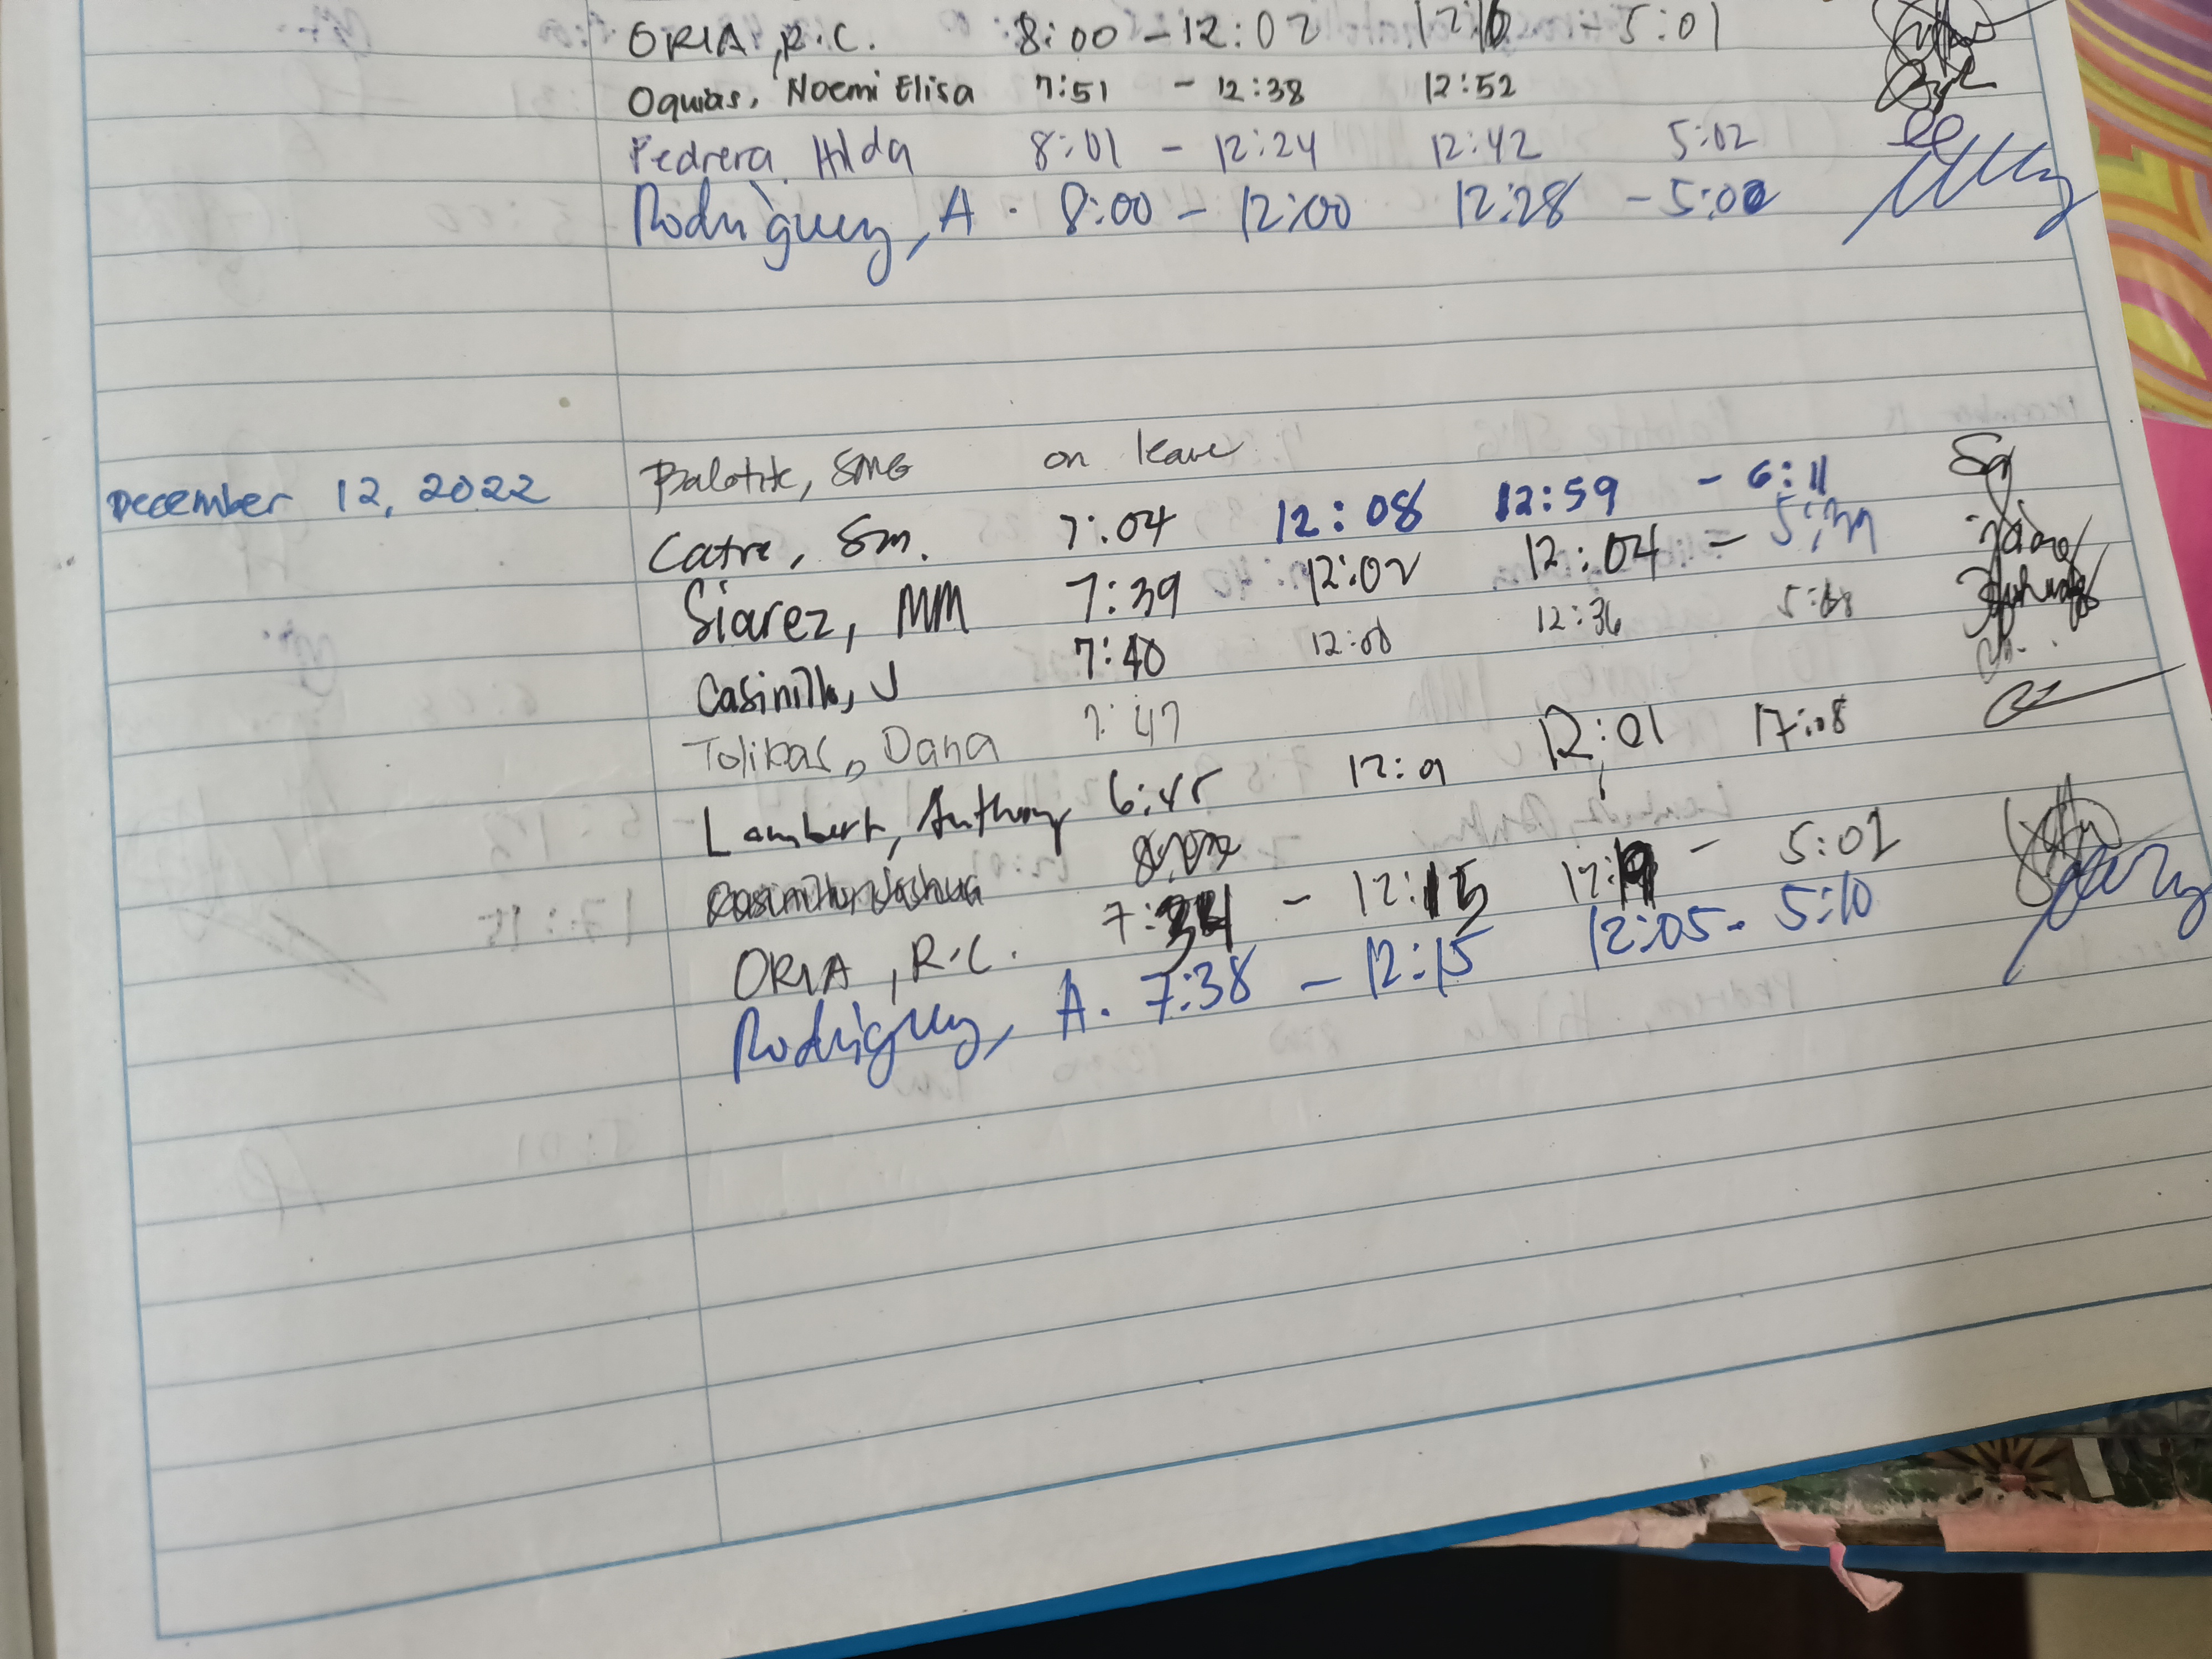 ORIA, R.C. 8:00 - 12:02 - 5:01
Oquias, Noemi Elisa 7:51 - 12:38 12:52
Pedrera, Hilda 8:01 - 12:24 12:42 5:02
Rodriguez, A. 8:00 - 12:00 12:28 - 5:02
December 12, 2022
Balotite, SMG on leave
Catre, SM. 7:04 12:08 12:59 - 6:11
Siarez, MM 7:39 12:02 12:04 - 5:39
Casinillo, J 7:40 12:00 12:36
Tolibas, Dana 7:47
Lambert, Anthony 6:45 12:01 17:08
Casinillo, Joshua
ORIA, R.C. 7:34 - 12:15 12:19 - 5:02
Rodriguez, A. 7:38 - 12:15 12:05 - 5:10